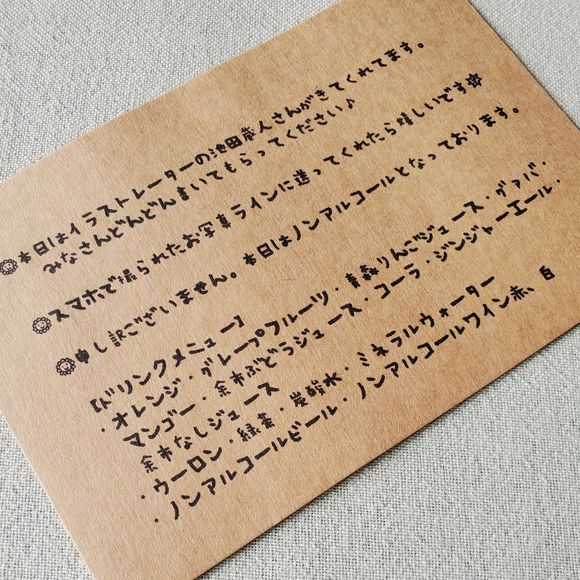 本日はイラストレーターの池田蔵人さんがきてくれてます。
みなさんどんどんまいてもらってください♪
スマホで撮られたお写真ラインに送ってくれたら嬉しいです
申し訳ございません。本日はノンアルコールとなっております。
【ドリンクメニュー】
・オレンジ・グレープフルーツ・青森りんごジュース・グァバ・
マンゴー・余市ぶどうジュース・コーラ・ジンジャーエール・
余市なしジュース
・ウーロン・緑茶・炭酸水・ミネラルウォーター
・ノンアルコールビール・ノンアルコールワイン赤、白